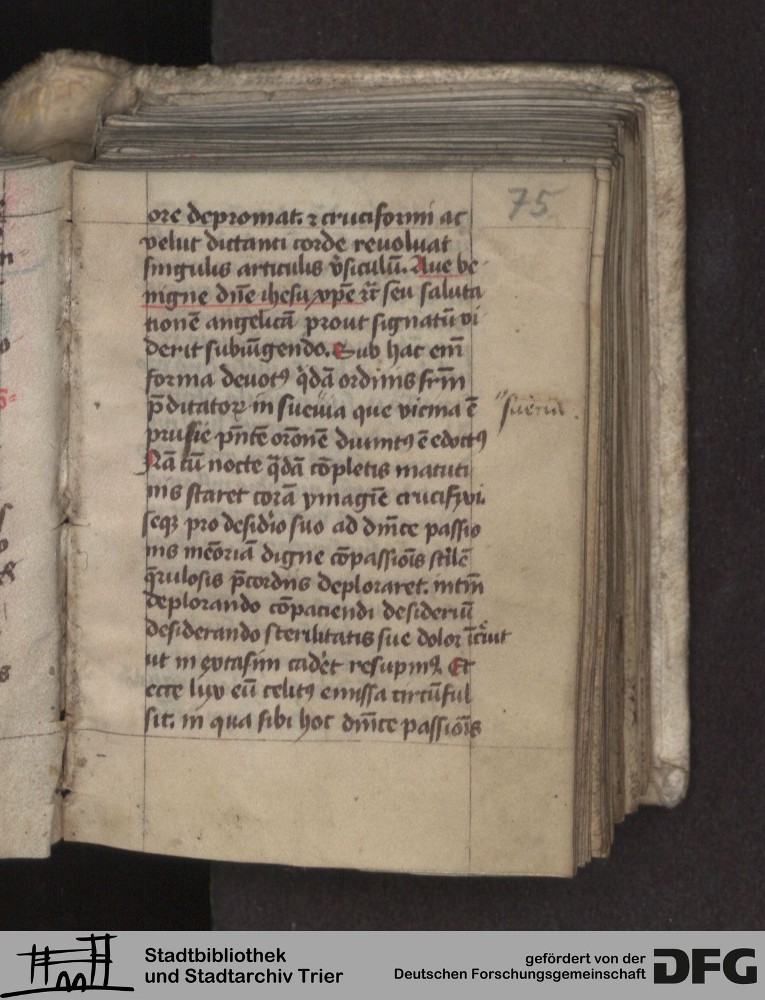 75
ore depromat. ⁊ cruciformi ac
velut dictanti corde reuoluat
singulis articulis v̾siculū. Aue be
nigne dn̄e ihesu xp̄e ⁊c̄ seu saluta
tionē angelicā prout signatū vi
derit subiūgendo. Sub hac em̄
forma deuotꝰ q̄dā ordinis fr̄m
p̄dicatoꝝ in sueuia que vicina ē
prusie p̄ntē orōnē diuinitꝰ ē edoctꝰ
Nā cū nocte q̄dā cōpletis matuti
nis staret corā ymagīe crucifixi.
seqꝫ pro desidio suo ad dn̄ice passio
nis memoriā digne cōpassiōis
q̄rulosis p̄cordiis deploraret. intm̄
deplorando cōpaciendi desideriū
desiderando sterilitatis sue dolor īcreuit
ut in extasim cadet resupinꝰ. Et
ecce lux eū celitꝰ emissa circūful
sit. in qua sibi hoc dn̄ice passiōis
"sueuia.
Stadtbibliothek
und Stadtarchiv Trier
gefördert von der
Deutschen Forschungsgemeinschaft
DFG